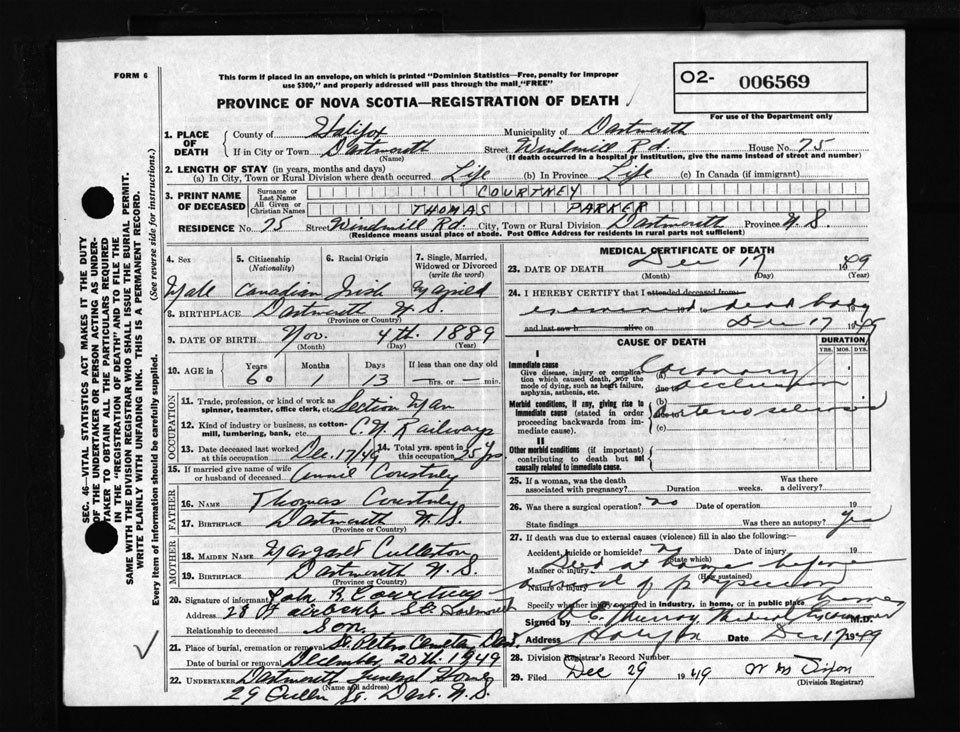 FORM 6
This form if placed in an envelope, on which is printed "Dominion Statistics—Free, penalty for improper
use $300," and properly addressed will pass through the mail "FREE"
O2- 006569
For use of the Department only
PROVINCE OF NOVA SCOTIA—REGISTRATION OF DEATH
SEC. 46—VITAL STATISTICS ACT MAKES IT THE DUTY
OF THE UNDERTAKER OR PERSON ACTING AS UNDER-
TAKER TO OBTAIN ALL THE PARTICULARS REQUIRED
IN THE "REGISTRATION OF DEATH" AND TO FILE THE
SAME WITH THE DIVISION REGISTRAR WHO SHALL ISSUE THE BURIAL PERMIT.
WRITE PLAINLY WITH UNFADING INK. THIS IS A PERMANENT RECORD.
Every item of information should be carefully supplied. (See reverse side for instructions.)
1. PLACE OF DEATH County of Halifax Municipality of Dartmouth
If in City or Town Dartmouth Street Windmill Rd. House No. 75
(Name) (If death occurred in a hospital or institution, give the name instead of street and number)
2. LENGTH OF STAY (in years, months and days)
(a) In City, Town or Rural Division where death occurred Life (b) In Province Life (c) In Canada (if immigrant)
3. PRINT NAME OF DECEASED Surname or Last Name COURTNEY
All Given or Christian Names THOMAS PARKER
RESIDENCE No. 75 Street Windmill Rd. City, Town or Rural Division Dartmouth Province N.S.
(Residence means usual place of abode. Post Office Address for residents in rural parts not sufficient)
4. Sex 5. Citizenship (Nationality) 6. Racial Origin 7. Single, Married, Widowed or Divorced (write the word)
Male Canadian Irish Married
8. BIRTHPLACE Dartmouth N.S.
(Province or Country)
9. DATE OF BIRTH Nov. 4th. 1889
(Month) (Day) (Year)
10. AGE in Years Months Days If less than one day old
60 1 13 — hrs. or — min.
OCCUPATION
11. Trade, profession, or kind of work as spinner, teamster, office clerk, etc. Section Man
12. Kind of industry or business, as cotton-mill, lumbering, bank, etc. C.N.R ailways
13. Date deceased last worked at this occupation Dec. 17/49 14. Total yrs. spent in this occupation 25 yrs
15. If married give name of wife or husband of deceased Annie Courtney
FATHER
16. NAME Thomas Courtney
17. BIRTHPLACE Dartmouth N.S.
(Province or Country)
MOTHER
18. MAIDEN NAME Margaret Culleton
19. BIRTHPLACE Dartmouth N.S.
(Province or Country)
20. Signature of informant B. Courtney
Address 28 St. Dartmouth
Relationship to deceased Son
21. Place of burial, cremation or removal St. Peters Dart.
Date of burial or removal December 20th. 1949
22. UNDERTAKER Dartmouth Funeral Home
(Name and address)
29 Queen St. Dart. N.S.
MEDICAL CERTIFICATE OF DEATH
23. DATE OF DEATH Dec 17 1949
(Month) (Day)
24. I HEREBY CERTIFY that I attended deceased from
examined dead body
and last saw h alive on Dec 17 1949
CAUSE OF DEATH DURATION
YRS. MOS. DYS.
I
Immediate cause
Give disease, injury or complication which caused death, not the mode of dying, such as heart failure, asphyxia, asthenia, etc.
(a) Coronary
due to occlusion
Morbid conditions, if any, giving rise to immediate cause (stated in order proceeding backwards from immediate cause).
(b)
due to arteriosclerosis
(c)
II
Other morbid conditions (if important) contributing to death but not causally related to immediate cause.
25. If a woman, was the death associated with pregnancy? Duration weeks. Was there a delivery?
26. Was there a surgical operation? no Date of operation 19
State findings Was there an autopsy? yes
27. If death was due to external causes (violence) fill in also the following:
Accident, suicide or homicide? no Date of injury 19
(State which)
Manner of injury Died at home before
(How sustained)
Nature of injury arrival of physician
Specify whether injury occurred in industry, in home, or in public place
Signed by Murray Medical Examiner M.D.
Address Halifax Date Dec 17 1949
28. Division Registrar's Record Number
29. Filed Dec 29 1949
(Division Registrar)